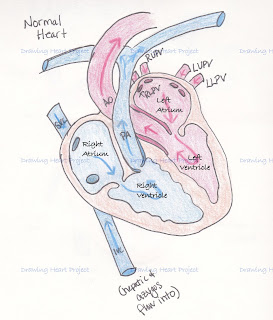 Normal
Heart
Drawing Heart Project
Drawing Heart Project
RUPV
LUPV
LLPV
RLPV
AO
Left
Atrium
SVC
PA
Right
Atrium
Left
Ventricle
Drawing Heart Project
Drawing Heart Project
Right
Ventricle
IVC
Drawing Heart Project
Drawing Heart Project
(hepatic &
azygos
flow into)